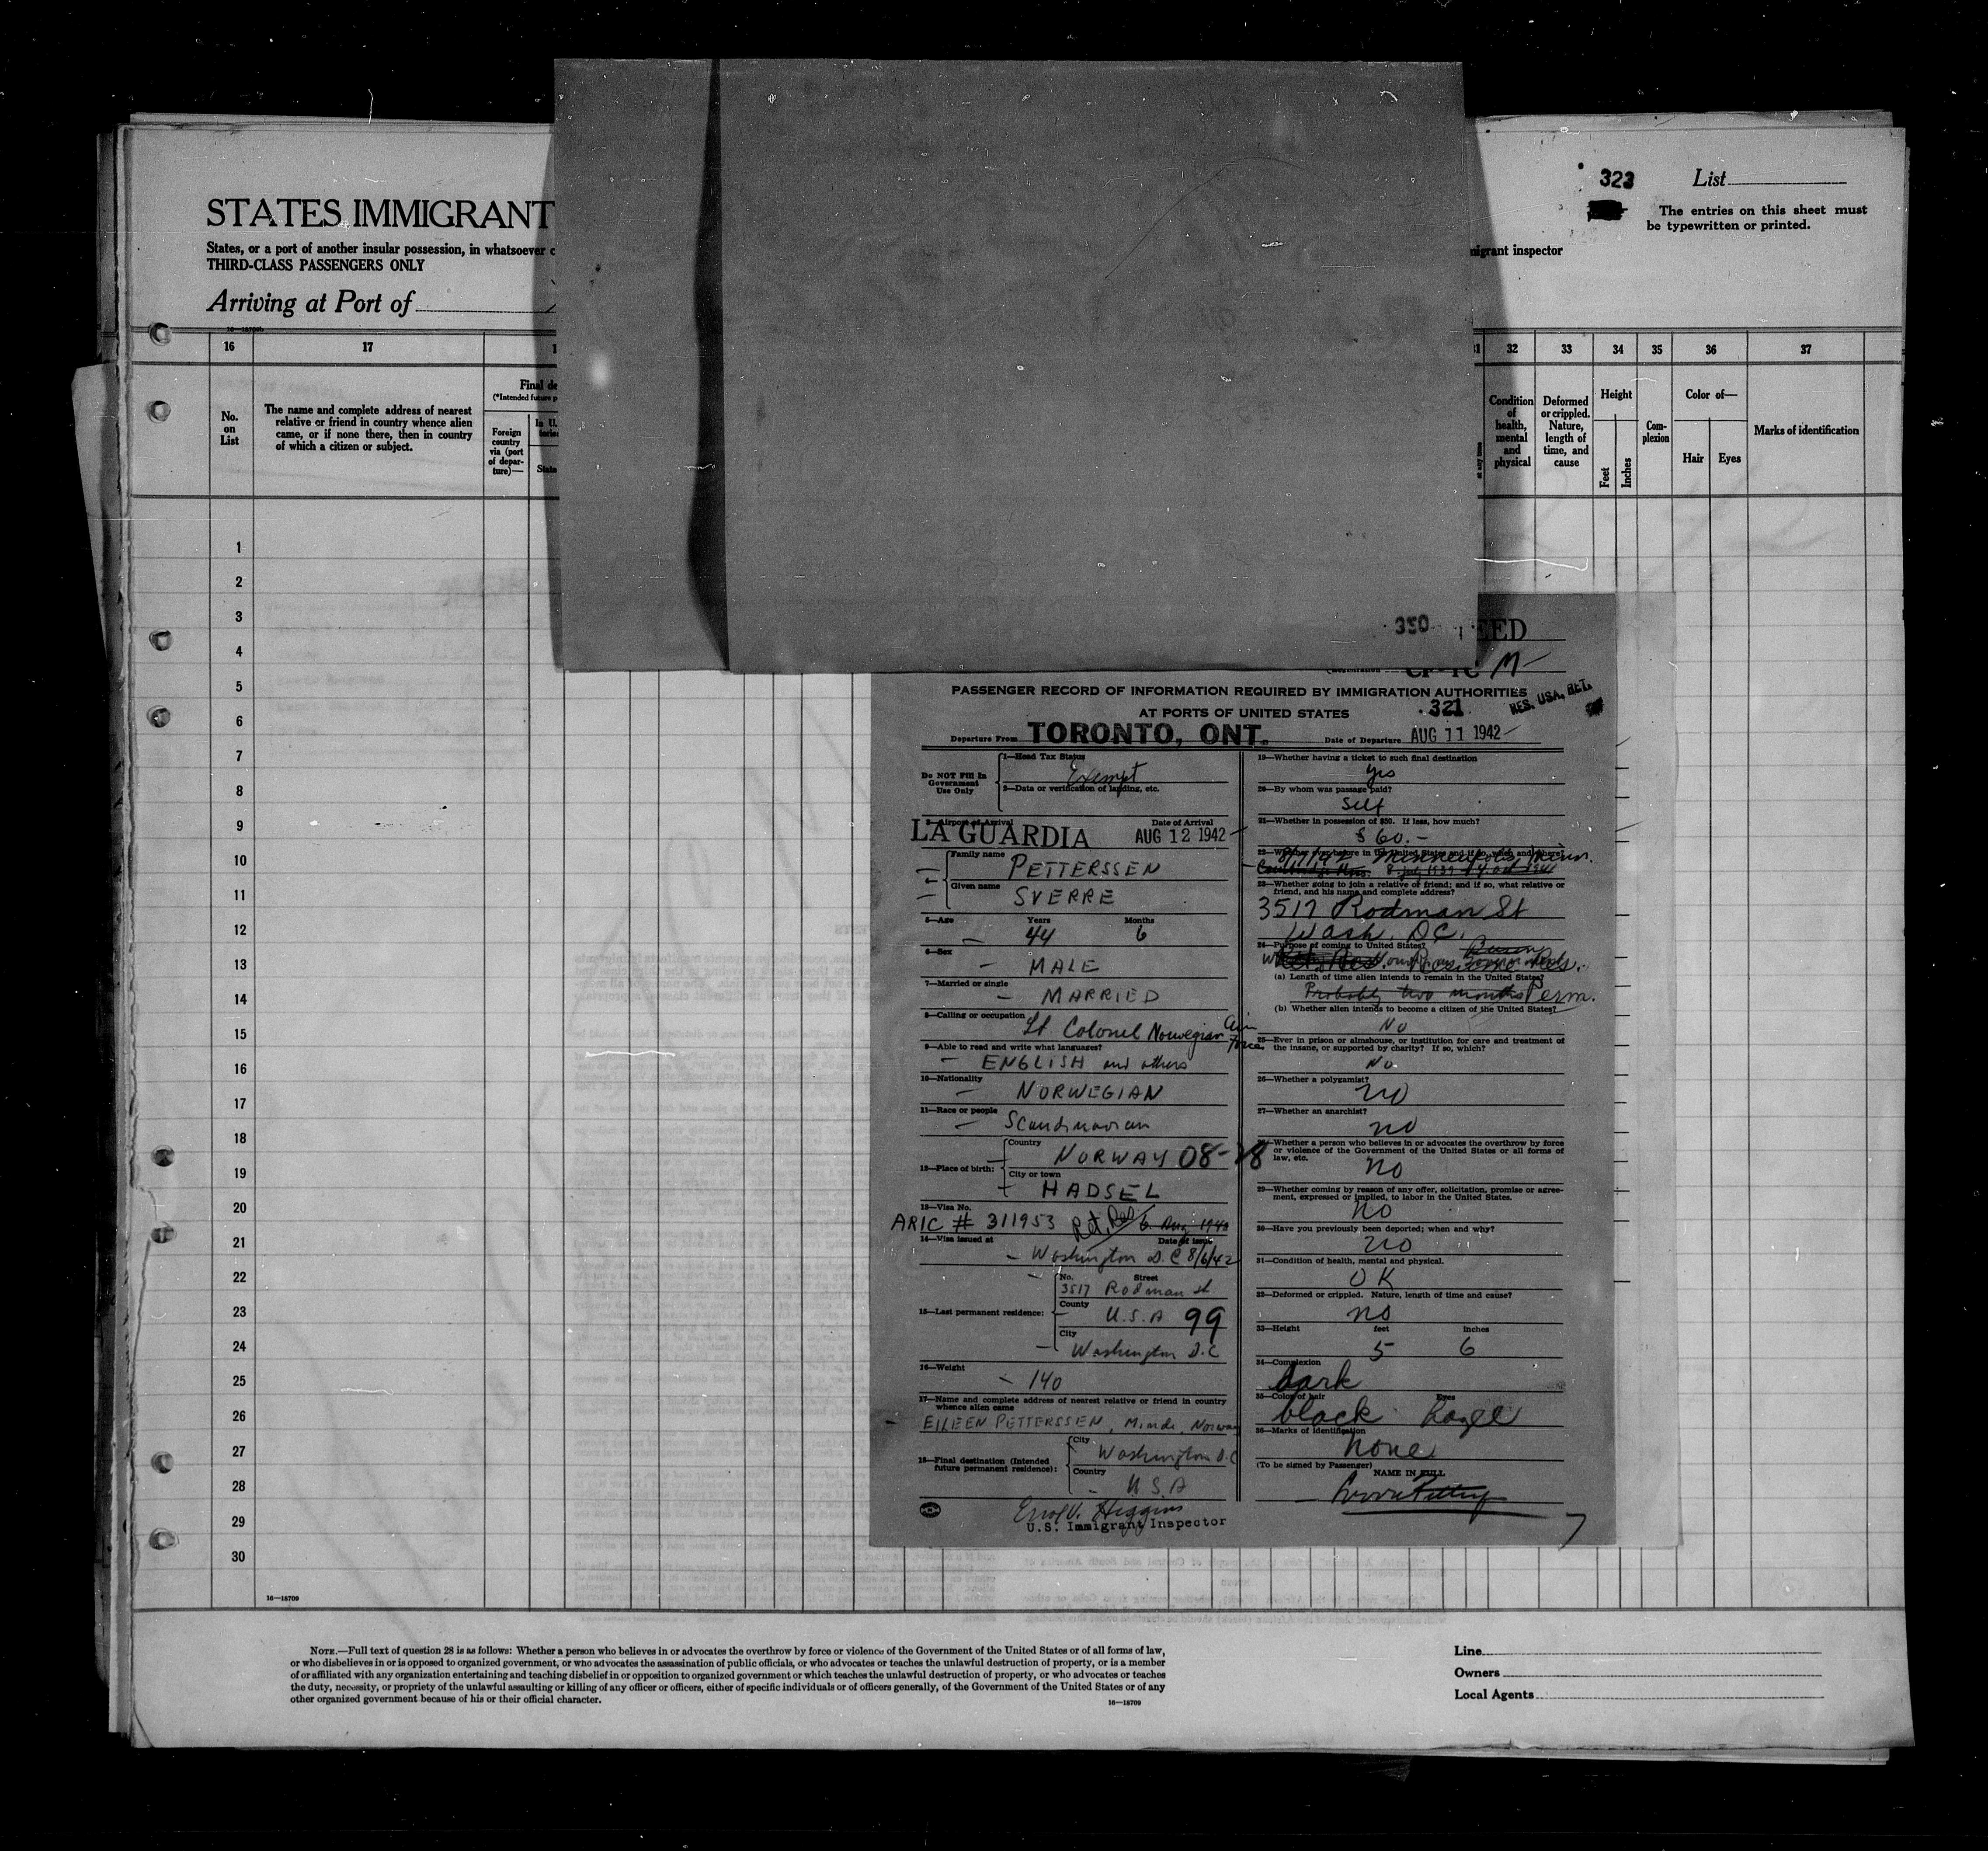 323 List
The entries on this sheet must
be typewritten or printed.
STATES IMMIGRANT
States, or a port of another insular possession, in whatsoever
THIRD-CLASS PASSENGERS ONLY
migrant inspector
Arriving at Port of
16 17 32 33 34 35 36 37
No.
on
List
The name and complete address of nearest
relative or friend in country whence alien
came, or if none there, then in country
of which a citizen or subject.
Final de
(*Intended future p
Foreign
country
via (port
of depar-
ture)—
In U.
State
Condition
of
health,
mental
and
physical
Deformed
or crippled.
Nature,
length of
time, and
cause
Height
Feet
Inches
Com-
plexion
Color of—
Hair Eyes
Marks of identification
1
2
3
4
5
6
7
8
9
10
11
12
13
14
15
16
17
18
19
20
21
22
23
24
25
26
27
28
29
30
16—18709
350
EED
M
PASSENGER RECORD OF INFORMATION REQUIRED BY IMMIGRATION AUTHORITIES
AT PORTS OF UNITED STATES
321
RES. USA, RET.
Departure From TORONTO, ONT. Date of Departure AUG 11 1942
Do NOT Fill In
Government
Use Only
1—Head Tax Status
Exempt
2—Data or verification of landing, etc.
3—Airport of Arrival Date of Arrival
LA GUARDIA AUG 12 1942
Family name
PETTERSSEN
Given name
SVERRE
5—Age Years Months
44 6
6—Sex
MALE
7—Married or single
MARRIED
8—Calling or occupation
Lt Colonel Norwegian Air Force
9—Able to read and write what languages?
ENGLISH and others
10—Nationality
NORWEGIAN
11—Race or people
Scandinavian
12—Place of birth:
Country
NORWAY 08-28
City or town
HADSEL
13—Visa No.
ARIC # 311953 Ret. Res 6 Aug 1942
14—Visa issued at Date of issue
Washington D.C 8/6/42
15—Last permanent residence:
No. Street
3517 Rodman St
County
U.S.A 99
City
Washington D.C
16—Weight
140
17—Name and complete address of nearest relative or friend in country
whence alien came
EILEEN PETTERSSEN, Minde, Norway
18—Final destination (Intended
future permanent residence):
City
Washington D.C
Country
USA
Errol V. Higgins
U.S. Immigrant Inspector
19—Whether having a ticket to such final destination
yes
20—By whom was passage paid?
Self
21—Whether in possession of $50. If less, how much?
$ 60.-
22—Whether ever before in the United States and if so, when and where?
8/7/42 Minneapolis, Minn.
23—Whether going to join a relative or friend; and if so, what relative or
friend, and his name and complete address?
3517 Rodman St
Wash, D.C.
24—Purpose of coming to United States?
(a) Length of time alien intends to remain in the United States?
Probably two months Perm.
(b) Whether alien intends to become a citizen of the United States?
No
25—Ever in prison or almshouse, or institution for care and treatment of
the insane, or supported by charity? If so, which?
No
26—Whether a polygamist?
no
27—Whether an anarchist?
no
28—Whether a person who believes in or advocates the overthrow by force
or violence of the Government of the United States or all forms of
law, etc.
no
29—Whether coming by reason of any offer, solicitation, promise or agree-
ment, expressed or implied, to labor in the United States.
no
30—Have you previously been deported; when and why?
no
31—Condition of health, mental and physical.
OK
32—Deformed or crippled. Nature, length of time and cause?
no
33—Height feet inches
5 6
34—Complexion
dark
35—Color of hair Eyes
black hazel
36—Marks of identification
none
(To be signed by Passenger)
NAME IN FULL
NOTE.—Full text of question 28 is as follows: Whether a person who believes in or advocates the overthrow by force or violence of the Government of the United States or of all forms of law,
or who disbelieves in or is opposed to organized government, or who advocates the assassination of public officials, or who advocates or teaches the unlawful destruction of property, or is a member
of or affiliated with any organization entertaining and teaching disbelief in or opposition to organized government or which teaches the unlawful destruction of property, or who advocates or teaches
the duty, necessity, or propriety of the unlawful assaulting or killing of any officer or officers, either of specific individuals or of officers generally, of the Government of the United States or of any
other organized government because of his or their official character.
16—18709
Line
Owners
Local Agents